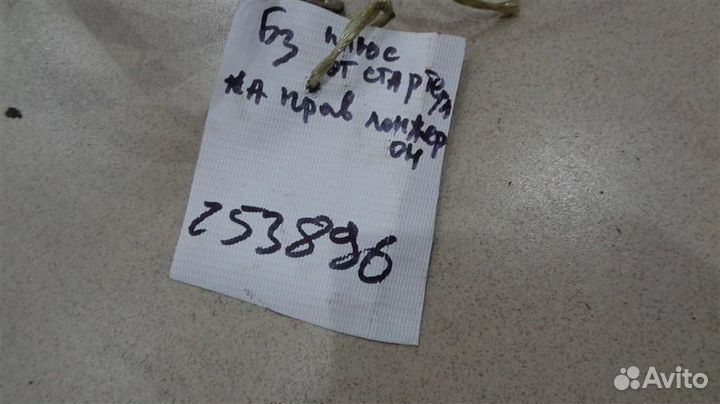 БЗ плюс
от стартера
на прав лонжер
он
253896
Avito